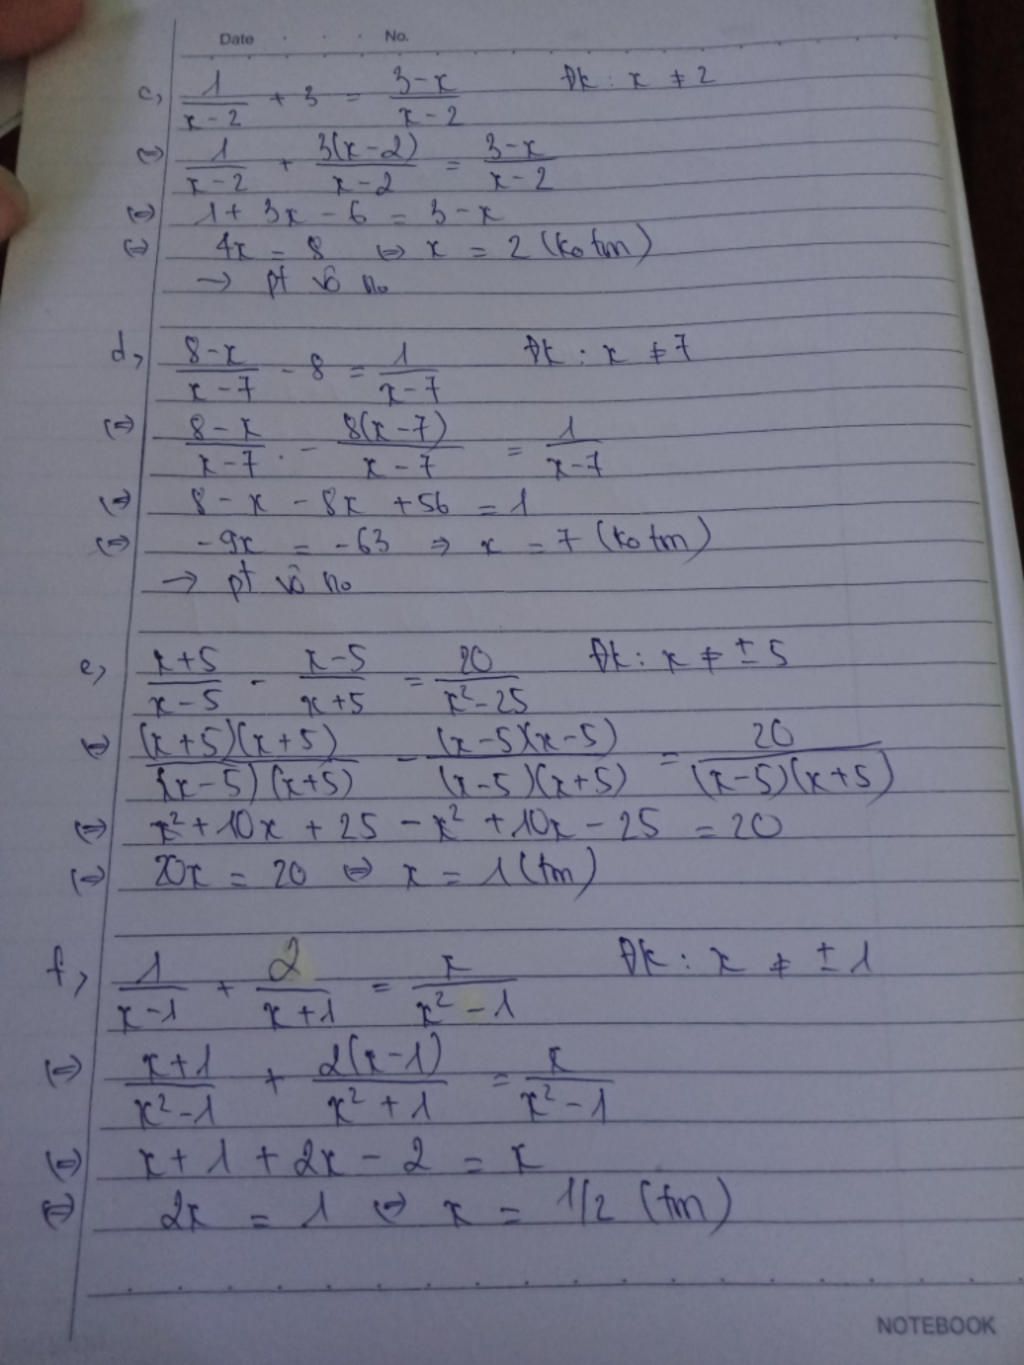 Date No.
c, 1/(x-2) + 3 = (3-x)/(x-2) Đk : x ≠ 2
(=) 1/(x-2) + 3(x-2)/(x-2) = (3-x)/(x-2)
(=) 1 + 3x - 6 = 3 - x
(=) 4x = 8 (=) x = 2 (ko tm)
→ pt vô no
d, (8-x)/(x-7) - 8 = 1/(x-7) Đk : x ≠ 7
(=) (8-x)/(x-7) - 8(x-7)/(x-7) = 1/(x-7)
(=) 8 - x - 8x + 56 = 1
(=) -9x = -63 => x = 7 (ko tm)
→ pt vô no
e, (x+5)/(x-5) - (x-5)/(x+5) = 20/(x²-25) Đk : x ≠ ± 5
(=) (x+5)(x+5)/(x-5)(x+5) - (x-5)(x-5)/(x-5)(x+5) = 20/(x-5)(x+5)
(=) x² + 10x + 25 - x² + 10x - 25 = 20
(=) 20x = 20 (=) x = 1 (tm)
f, 1/(x-1) + 2/(x+1) = x/(x²-1) Đk : x ≠ ± 1
(=) (x+1)/(x²-1) + 2(x-1)/(x²+1) = x/(x²-1)
(=) x + 1 + 2x - 2 = x
(=) 2x = 1 (=) x = 1/2 (tm)
NOTEBOOK